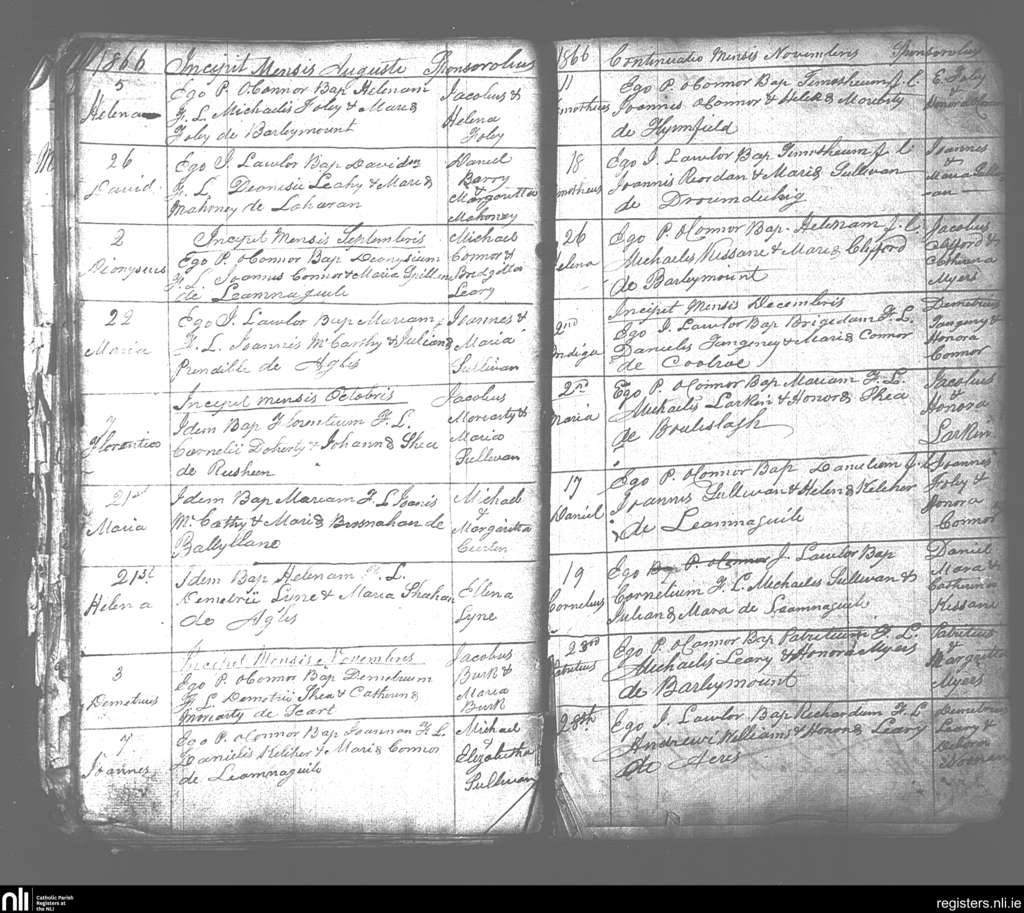 1866 Incipit Mensis Augusti Sponsoribus
5 Ego P. O'Connor Bap Helenam Jacobus &
Helena F. L. Michaelis Foley & Mariæ Helena
Foley de Barleymount Foley
26 Ego J. Lawlor Bap Davidm Daniel
David F. L. Dionesii Leahy & Mariæ Barry &
Mahoney de Laharan Margaritta
Mahoney
2 Incipit Mensis Septembris Michael
Dionysius Ego P. O'Connor Bap Deonysium Connor &
F. L. Joannis Connor & Maria Bridgetta
de Leamnaguile Leary
22 Ego J. Lawlor Bap Mariam Joannes &
Maria F. L. Joannis McCarthy & Julianæ Maria
Prendible de Aglis Sullivan
Incipit mensis Octobris Jacobus
7 Idem Bap Florentium F. L. Moriarty &
Florentico Cornelii Doherty & Johannæ Shea Maria
de Rusheen Sullivan
21st Idem Bap Mariam F L Joanis Michael
Maria McCathy & Mariæ Brosnahan de &
Ballyllane Margaritta
Curten
21st Idem Bap Helenam F. L.
Helena Demetrii Lyne & Maria Shahan Ellena
de Aglis Lyne
Incipit Mensis Novembris Jacobus
3 Ego P. O'Connor Bap Demetrium Burk &
Demetrius F L Demetrii Shea & Maria
Moriarty de Burk
7 Ego P. O'Connor Bap Joannan F L Michael
Joannes Danielis Kelcher & Mariæ Connor &
de Leamnaguile Elizabetha
Sullivan
1866 Continuatio Mensis Novembris Sponsoribus
11 Ego P. O'Connor Bap Timotheum f. l. E Foley
Timotheus Joannis O'Connor & Helenæ Moriarty &
de Flymfield
18 Ego J. Lawlor Bap Timotheum f. l. Joannes
Timotheus Joannis Reordan & Mariæ Sullivan &
de Droumduhig Maria
26 Ego P. O'Connor Bap. Helenam f. l. Jacobus
Helena Michaelis Kissane & Mariæ Clifford Clifford &
de Barleymount Catherina
Myers
Incipit Mensis Decembris Demetrius
2nd Ego J. Lawlor Bap Brigidam F. L. Tangney &
Danielis Tangney & Mariæ Connor Honora
de Coolroe Connor
2nd Ego P. O'Connor Bap Mariam F. L. Jacobus
Maria Michaelis Larkin & Honoræ Shea &
de Honora
Larkin
17 Ego P. O'Connor Bap Joannes
Daniel Joannis Sullivan & Helenæ Kelcher Foley &
de Leamnaguile Honora
Connor
19 Ego P. O'Connor J. Lawlor Bap Daniel
Cornelius Cornelium F. L. Michaelis Sullivan & Mara &
Julianæ Mara de Leamnaguile Catherina
Kissane
23rd Ego P. O'Connor Bap Patritium F. L. Patritius
Patritius Michaelis Leary & Honora Myers &
de Barleymount Margaritta
Myers
28th Ego J. Lawlor Bap Richardum F. L. Demetrius
Andrewi Williams & Honoræ Leary Leary &
de Aeres Deborah
nli Catholic Parish
Registers at
the NLI
registers.nli.ie